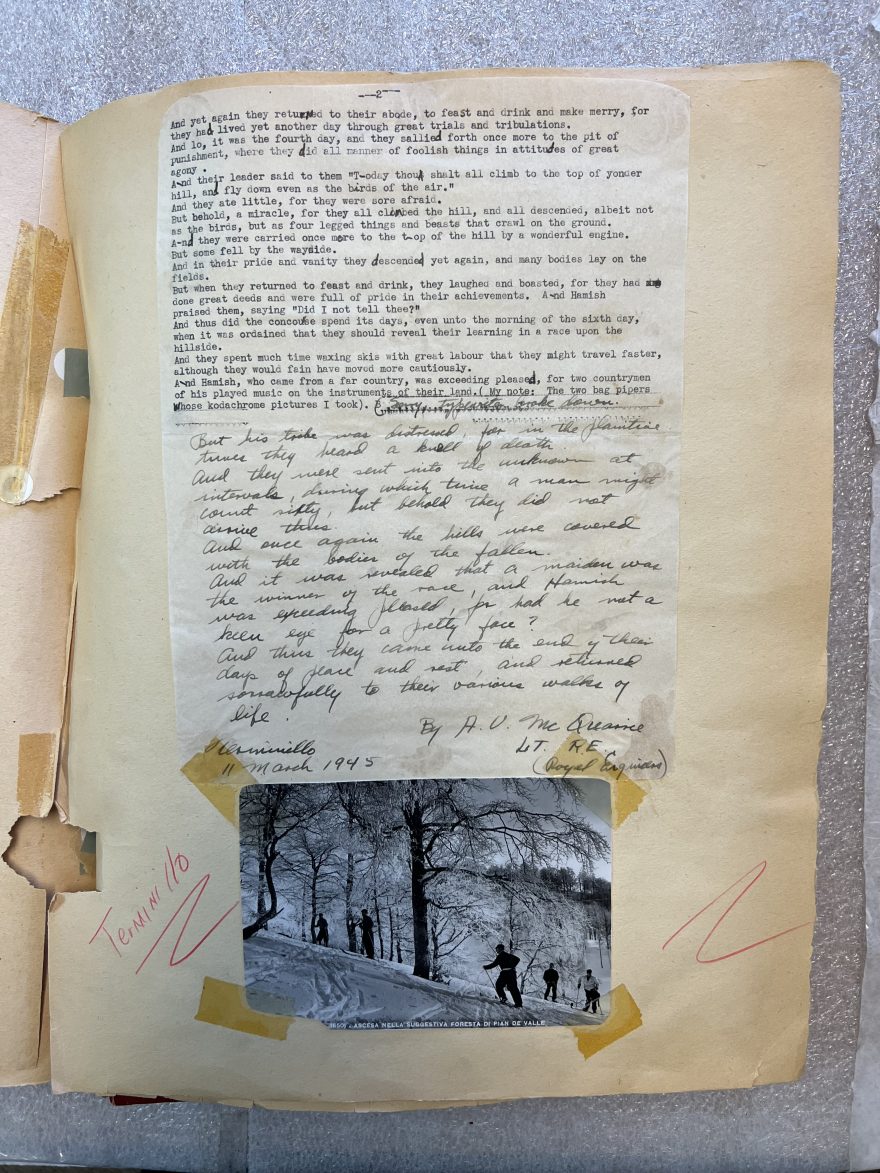 ---2---
And yet again they returned to their abode, to feast and drink and make merry, for
they had lived yet another day through great trials and tribulations.
And lo, it was the fourth day, and they sallied forth once more to the pit of
punishment, where they did all manner of foolish things in attitudes of great
agony .
A-nd their leader said to them "T-oday thou shalt all climb to the top of yonder
hill, and fly down even as the birds of the air."
And they ate little, for they were sore afraid.
But behold, a miracle, for they all climbed the hill, and all descended, albeit not
as the birds, but as four legged things and beasts that crawl on the ground.
A-nd they were carried once more to the t-op of the hill by a wonderful engine.
But some fell by the wayside.
And in their pride and vanity they descended yet again, and many bodies lay on the
fields.
But when they returned to feast and drink, they laughed and boasted, for they had
done great deeds and were full of pride in their achievements. A-nd Hamish
praised them, saying "Did I not tell thee?"
And thus did the concouse spend its days, even unto the morning of the sixth day,
when it was ordained that they should reveal their learning in a race upon the
hillside.
And they spent much time waxing skis with great labour that they might travel faster,
although they would fain have moved more cautiously.
A-nd Hamish, who came from a far country, was exceeding pleased, for two countrymen
of his played music on the instruments of their land.( My note: The two bag pipers
whose kodachrome pictures I took). (Sorry, typewriter broke down.
But his tribe was distressed, for in the plaintive
tunes they heard a knell of death.
And they were sent into the unknown at
intervals, during which time a man might
count sixty, but behold they did not
arrive thus.
And once again the hills were covered
with the bodies of the fallen.
And it was revealed that a maiden was
the winner of the race, and Hamish
was exceeding pleased, for had he not a
keen eye for a pretty face?
And thus they came unto the end of their
days of peace and rest, and returned
sorrowfully to their various walks of
life.
By A. V. Mc
Terminillo LT. R.E.
11 March 1945 (Royal Engineers)
Terminillo
ASCESA NELLA SUGGESTIVA FORESTA DI PIAN DE VALLE